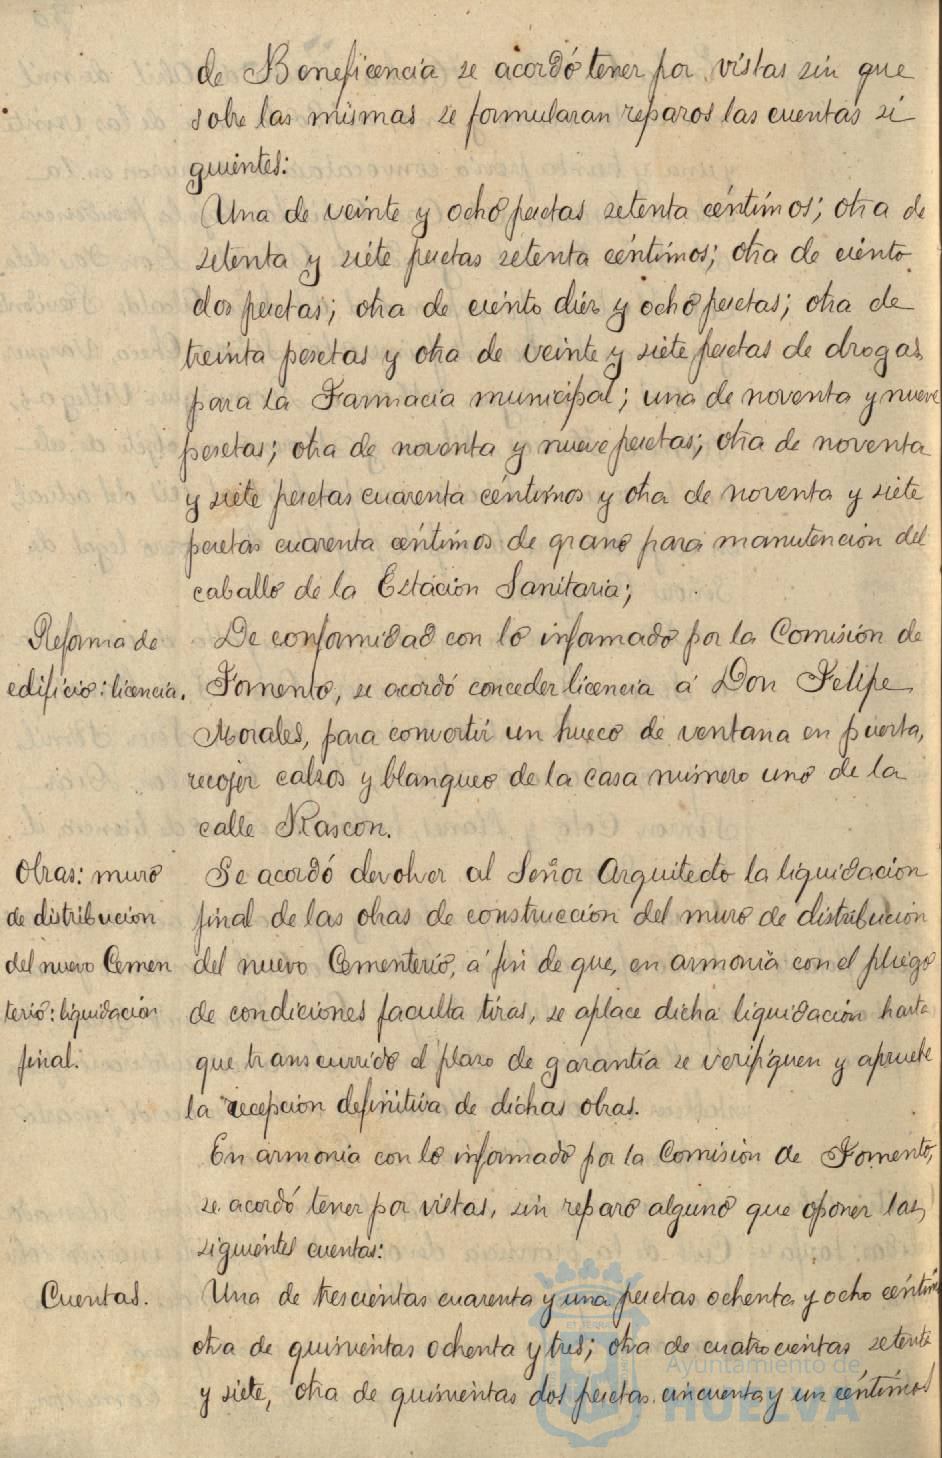 de Beneficencia se acordó tener por vistas sin que
sobre las mismas se formularan reparos las cuentas si
guientes:
Una de veinte y ocho pesetas setenta céntimos; otra de
setenta y siete pesetas setenta céntimos; otra de ciento
dos pesetas; otra de ciento diez y ocho pesetas; otra de
treinta pesetas y otra de veinte y siete pesetas de drogas
para la Farmacia municipal; una de noventa y nueve
pesetas; otra de noventa y nueve pesetas; otra de noventa
y siete pesetas cuarenta céntimos y otra de noventa y siete
pesetas cuarenta céntimos de grano para manutención del
caballo de la Estación Sanitaria;
Reforma de
edificio: licencia.
De conformidad con lo informado por la Comisión de
Fomento, se acordó conceder licencia á Don Felipe
Morales, para convertir un hueco de ventana en puerta,
recojer calzos y blanqueo de la casa número uno de la
calle Rascon.
Obras: muro
de distribución
del nuevo Cemen
terio: liquidación
final.
Se acordó devolver al Señor Arquitecto la liquidación
final de las obras de construcción del muro de distribución
del nuevo Cementerio, á fin de que, en armonia con el pliego
de condiciones faculta tivas, se aplace dicha liquidación hasta
que transcurrido el plazo de garantía se verifiquen y apruebe
la recepción definitiva de dichas obras.
En armonia con lo informado por la Comisión de Fomento,
se acordó tener por vistas, sin reparo alguno que oponer las
siguientes cuentas:
Cuentas.
Una de trescientas cuarenta y una pesetas ochenta y ocho céntimos
otra de quinientas ochenta y tres; otra de cuatrocientas setenta
y siete, otra de quinientas dos pesetas cincuenta y un céntimos
Ayuntamiento de
HUELVA